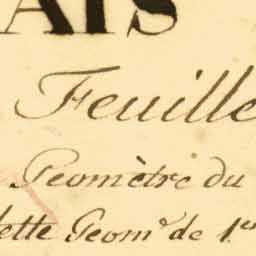 AIS
Feuille
Geomètre du
lette Geom.e de 1.er